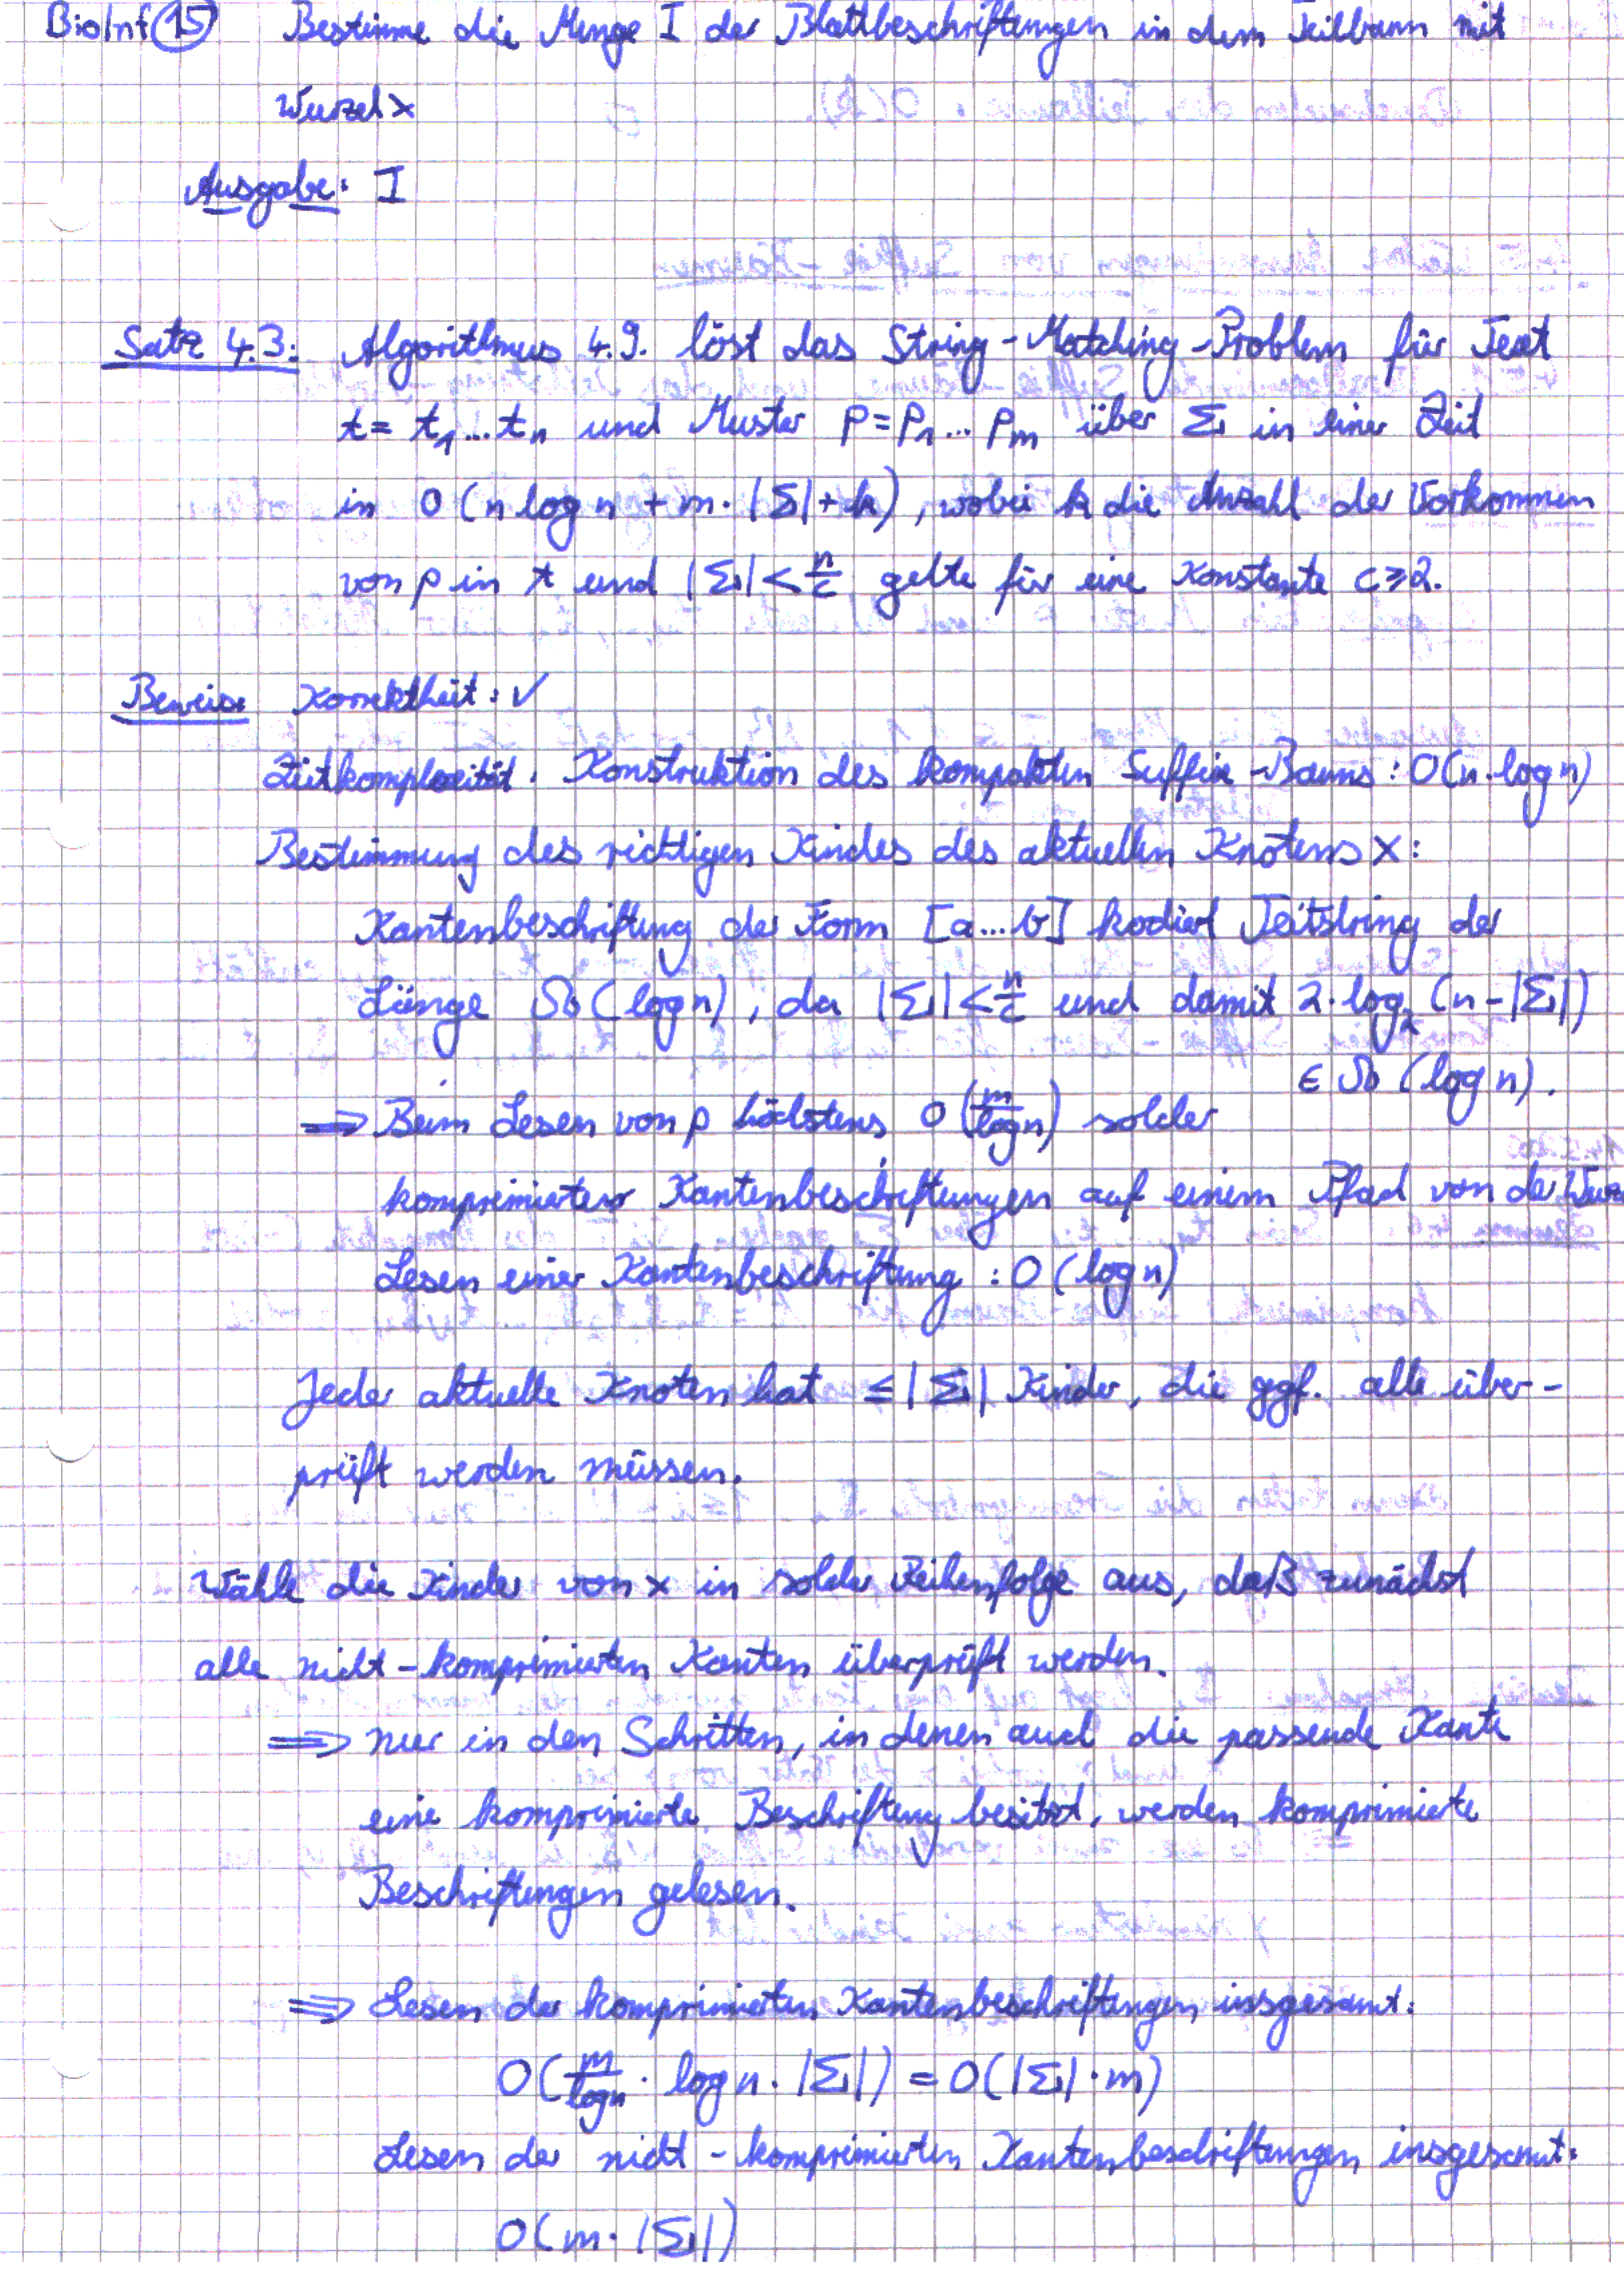 BioInf 15 Bestimme die Menge I der Blattbeschriftungen in dem Teilbaum mit
Wurzel x
Ausgabe: I
Satz 4.3: Algorithmus 4.9. löst das String-Matching-Problem für Text
t = t₁...tₙ und Muster p = p₁...pₘ über Σ in einer Zeit
in O(n log n + m·|Σ| + k), wobei k die Anzahl der Vorkommen
von p in t und |Σ| < n/c gelte für eine Konstante c ≥ 2.
Beweis: Korrektheit: ✓
Zeitkomplexität: Konstruktion des kompakten Suffix-Baums: O(n·log n)
Bestimmung des richtigen Kindes des aktuellen Knotens x:
Kantenbeschriftung der Form [a...b] kodiert Teilstring der
Länge Ω(log n), da |Σ| < n/c und damit 2·log₂(n-|Σ|)
∈ Ω(log n).
⇒ Beim Lesen von p höchstens O(m/log n) solcher
komprimierter Kantenbeschriftungen auf einem Pfad von der Wurz
Lesen einer Kantenbeschriftung: O(log n)
Jeder aktuelle Knoten hat ≤ |Σ| Kinder, die ggf. alle über-
prüft werden müssen.
Wähle die Kinder von x in solcher Reihenfolge aus, daß zunächst
alle nicht-komprimierten Kanten überprüft werden.
⇒ nur in den Schritten, in denen auch die passende Kante
eine komprimierte Beschriftung besitzt, werden komprimierte
Beschriftungen gelesen.
⇒ Lesen der komprimierten Kantenbeschriftungen insgesamt:
O(m/log n · log n · |Σ|) = O(|Σ|·m)
Lesen der nicht-komprimierten Kantenbeschriftungen insgesamt:
O(m·|Σ|)